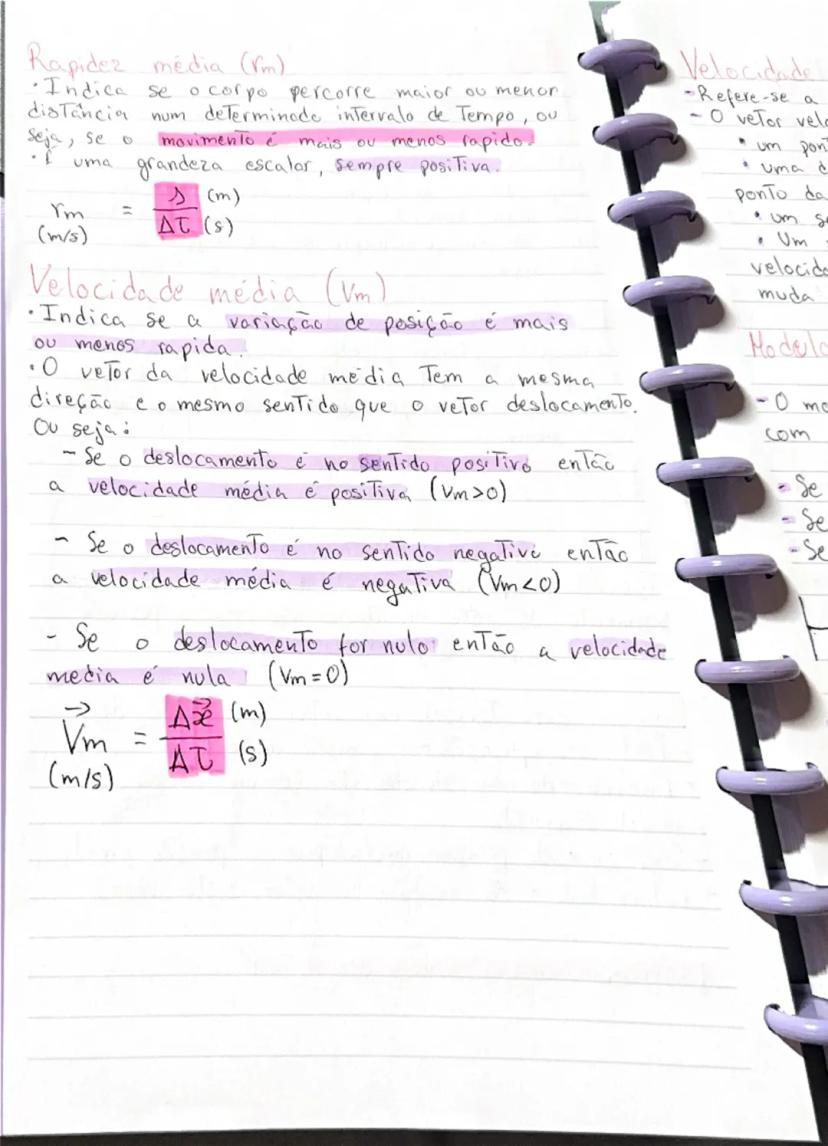 Rapidez média (rm)
• Indica se o corpo percorre maior ou menor
distância num determinado intervalo de Tempo, ou
seja, se o movimento é mais ou menos rapido.
• É uma grandeza escalar, sempre positiva.
rm = s (m)
(m/s) Δt (s)
Velocidade média (Vm)
• Indica se a variação de posição é mais
ou menos rapida.
• O vetor da velocidade média Tem a mesma
direção e o mesmo sentido que o vetor deslocamento.
Ou seja:
- Se o deslocamento é no sentido positivo então
a velocidade média é positiva (Vm>0)
- Se o deslocamento é no sentido negativo então
a velocidade média é negativa (Vm<0)
- Se o deslocamento for nulo então a velocidade
media é nula (Vm=0)
V⃗m = Δx⃗ (m)
(m/s) Δt (s)
Velocidade
- Refere-se a
- O vetor
• um
• uma
ponto da
• um
• Um
muda
- O
com
- Se
- Se
- Se